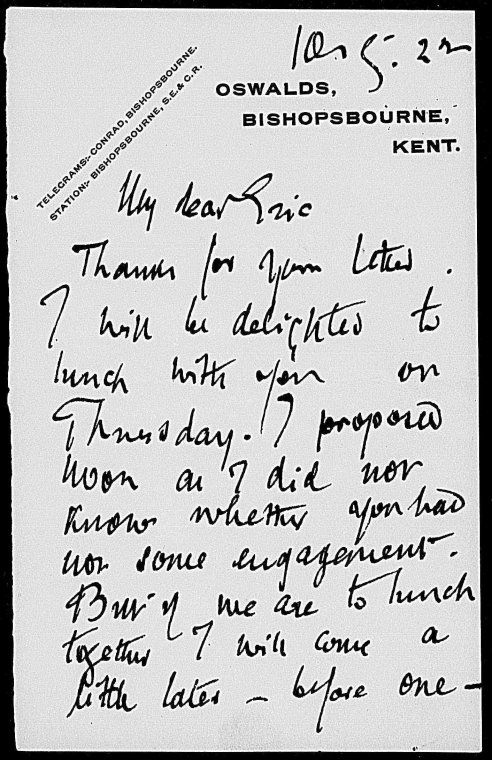 10. 5. 22
TELEGRAMS:- CONRAD, BISHOPSBOURNE.
STATION:- BISHOPSBOURNE, S.E. & C.R.
OSWALDS,
BISHOPSBOURNE,
KENT.
My dear Eric
Thanks for your letter.
I will be delighted to
lunch with you on
Thursday. I proposed
noon as I did not
know whether you had
not some engagement.
But if we are to lunch
together I will come a
little later – before one –